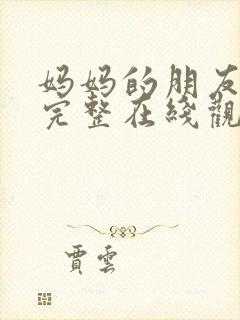 妈妈的朋友
完整在线觀
賈雲